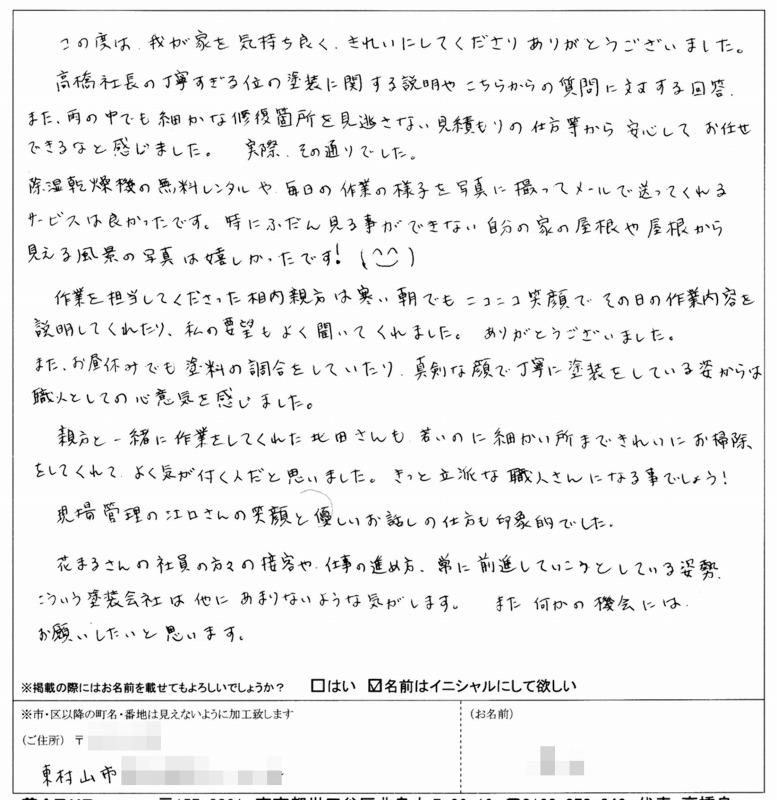 この度は、我が家を気持ち良く、きれいにしてくださりありがとうございました。
高橋社長の丁寧すぎる位の塗装に関する説明やこちらからの質問に対する回答、
また、雨の中でも細かな修復箇所を見逃さない見積もりの仕方等から安心してお任せ
できるなと感じました。 実際、その通りでした。
除湿乾燥機の無料レンタルや、毎日の作業の様子を写真に撮ってメールで送ってくれる
サービスは良かったです。特にふだん見る事ができない自分の家の屋根や屋根から
見える風景の写真は嬉しかったです!(^^)
作業を担当してくださった相内親方は寒い朝でもニコニコ笑顔でその日の作業内容を
説明してくれたり、私の要望もよく聞いてくれました。ありがとうございました。
また、お昼休みでも塗料の調合をしていたり、真剣な顔で丁寧に塗装をしている姿からは
職人としての心意気を感じました。
親方と一緒に作業をしてくれた北田さんも、若いのに細かい所まできれいにお掃除
をしてくれて、よく気が付く人だと思いました。きっと立派な職人さんになる事でしょう!
現場管理の江口さんの笑顔と優しいお話しの仕方も印象的でした。
花まるさんの社員の方々の接客や、仕事の進め方、常に前進していこうとしている姿勢、
こういう塗装会社は他にあまりないような気がします。 また何かの機会には、
お願いしたいと思います。
※掲載の際にはお名前を載せてもよろしいでしょうか? □はい ☑名前はイニシャルにして欲しい
※市・区以降の町名・番地は見えないように加工致します
(お名前)
(ご住所) 〒
東村山市